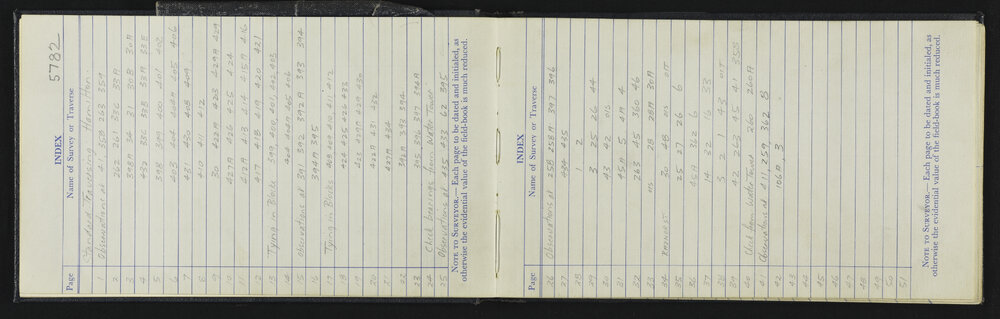 5782
INDEX
Page Name of Survey or Traverse
Standard Traversing Hamilton.
1 Observations at 41 358 263 359
2 262 261 396 39A
3 398A 34 31 30B 30A
4 432 33C 33B 33A 33B
5 398 399 400 401 402
6 403 404 404A 405 406
7 43 433 408 409
8 410 411 412
9 30 422A 423 429A 429
10 427A 426 425 424
11 412A 413 414 415A 416
12 417 418 419 420 421
13 Tying in Blocks 399, 400, 401, 402, 403
14 404 404A 405 406
15 Observations at 39 392 392A 393 394
16 394A 395
17 Tying in Blocks 408 409, 410, 411, 412
18 424 425 426 433
19 421 429A 429 430
20 422A 431 432
21 427A 434
22 392A 393 394
23 395 396 397 396A
24 Check bearings from Water Tower
25 Observations at 435 433 62 395
NOTE TO SURVEYOR.— Each page to be dated and initialed, as
otherwise the evidential value of the field-book is much reduced.
INDEX
Page Name of Survey or Traverse
26 Observations at 25B 258A 397 396
27 434 435
28 1 2
29 3 25 26 44
30 43 42
31 45A 5 4
32 263 45 360 46
33 28 28A 30A
34 30 4B
35 25 27 26 6
36 45A 362 6
37 14 32 16 33
38 3 2 1 43
39 42 263 45 41 358
40 Check from Water Tower 260 260A
41 Observations at 411, 259 362 8
42 106A 3
43
44
45
46
47
48
49
50
51
NOTE TO SURVEYOR.— Each page to be dated and initialed, as
otherwise the evidential value of the field-book is much reduced.